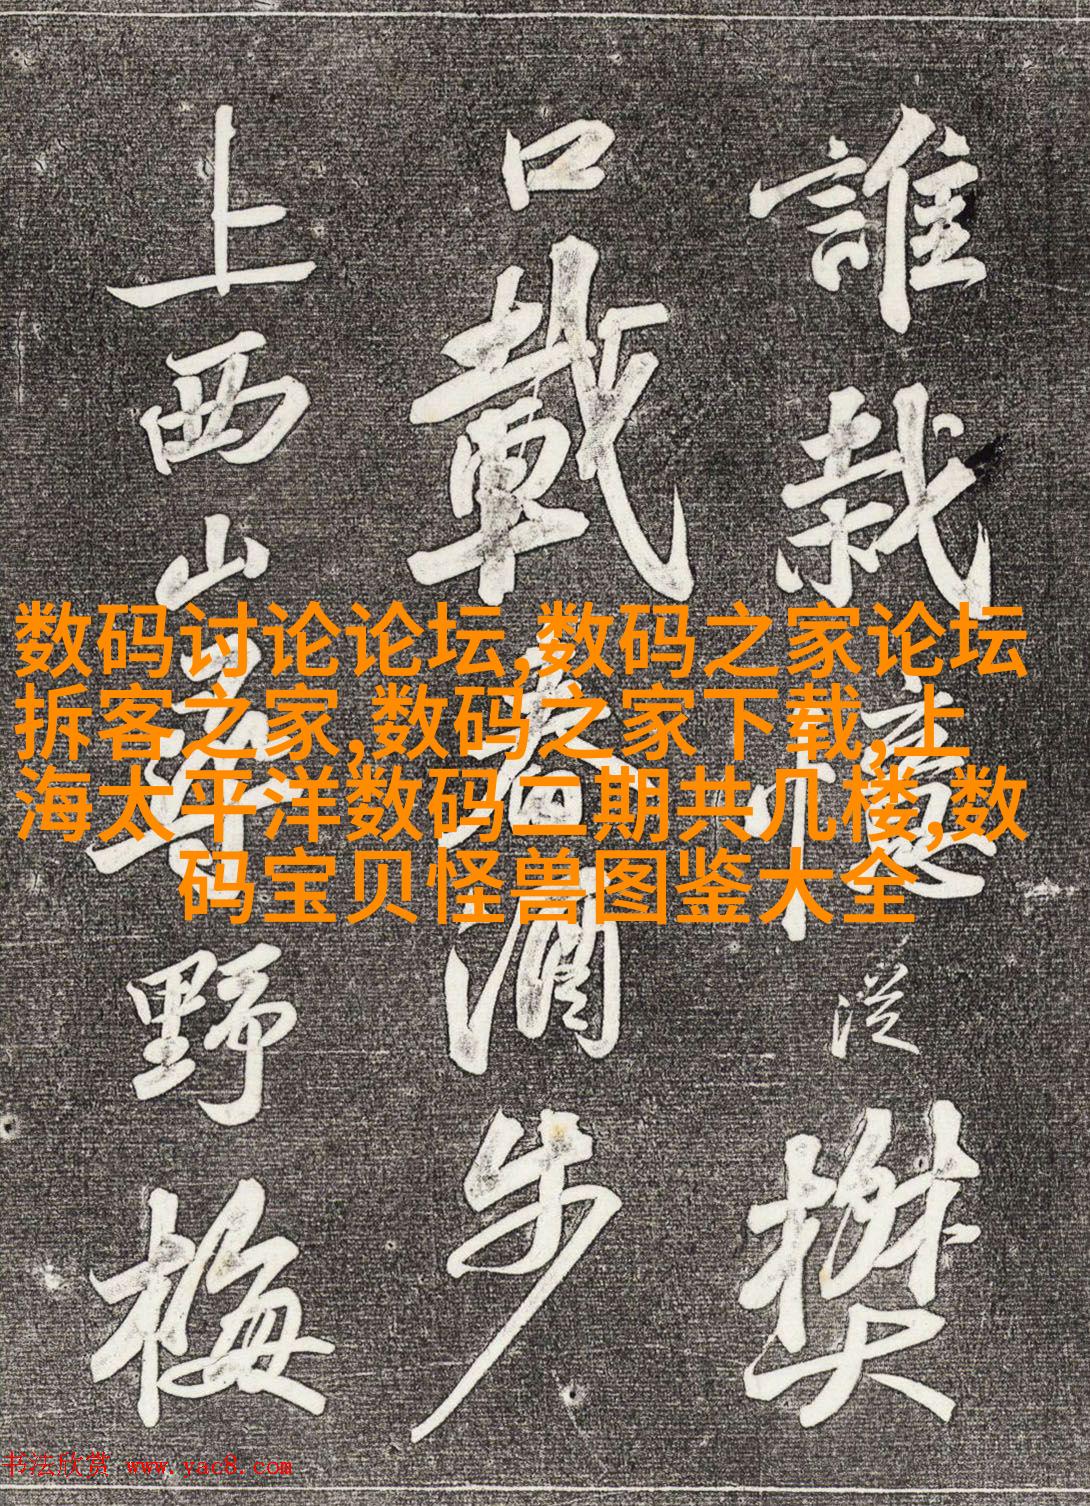 誰栽憶從樊
口載春酒步
上西山尋野梅
数码讨论论坛,数码之家论坛
拆客之家,数码之家下载,上
海太平洋数码二期共几楼,数
码宝贝怪兽图鉴大全
书法欣赏 www.yac8.com